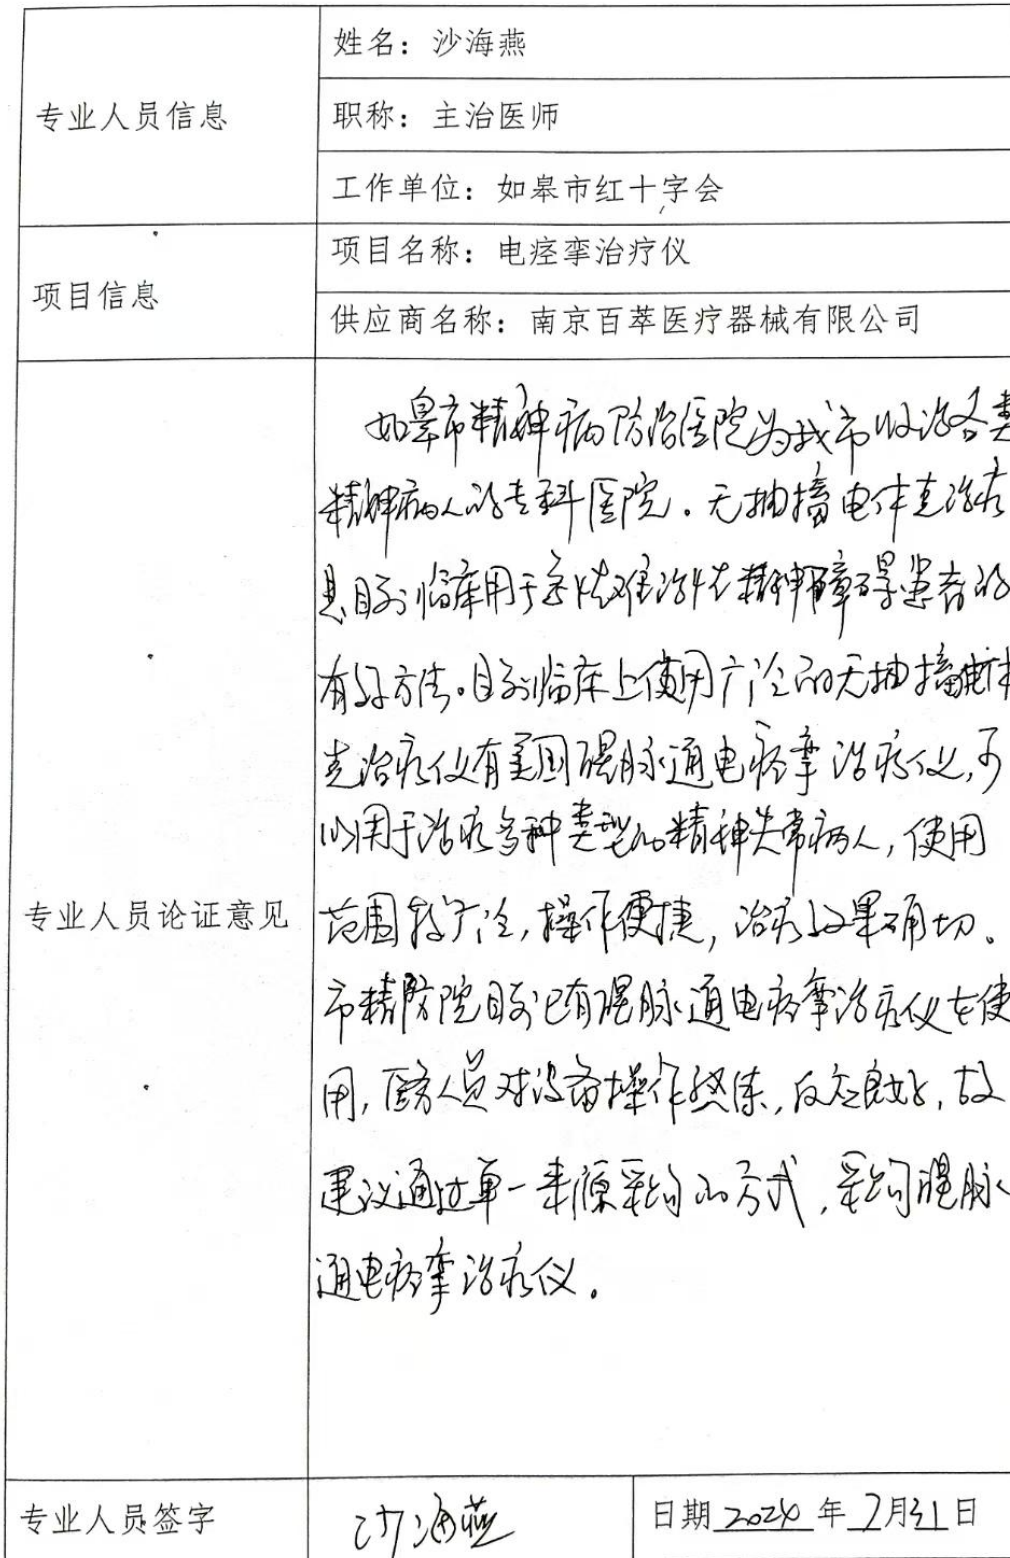 姓名：沙海燕
专业人员信息
职称：主治医师
工作单位：如皋市红十字会
项目名称：电痉挛治疗仪
项目信息
供应商名称：南京百萃医疗器械有限公司
如皋市精神病防治医院为我市收治各类
精神病人的专科医院。无抽搐电休克治疗
是目前临床用于急性难治性精神障碍患者的
有效方法。目前临床上使用广泛的无抽搐电休
克治疗仪有美国醒脉通电痉挛治疗仪，可
以用于治疗多种类型的精神失常病人，使用
范围较广泛，操作便捷，治疗效果确切。
专业人员论证意见
市精防院目前已有醒脉通电痉挛治疗仪在使
用，医务人员对设备操作熟练，反应良好，故
建议通过单一来源采购的方式，采购醒脉
通电痉挛治疗仪。
专业人员签字
沙海燕
日期 2024 年 7月31日